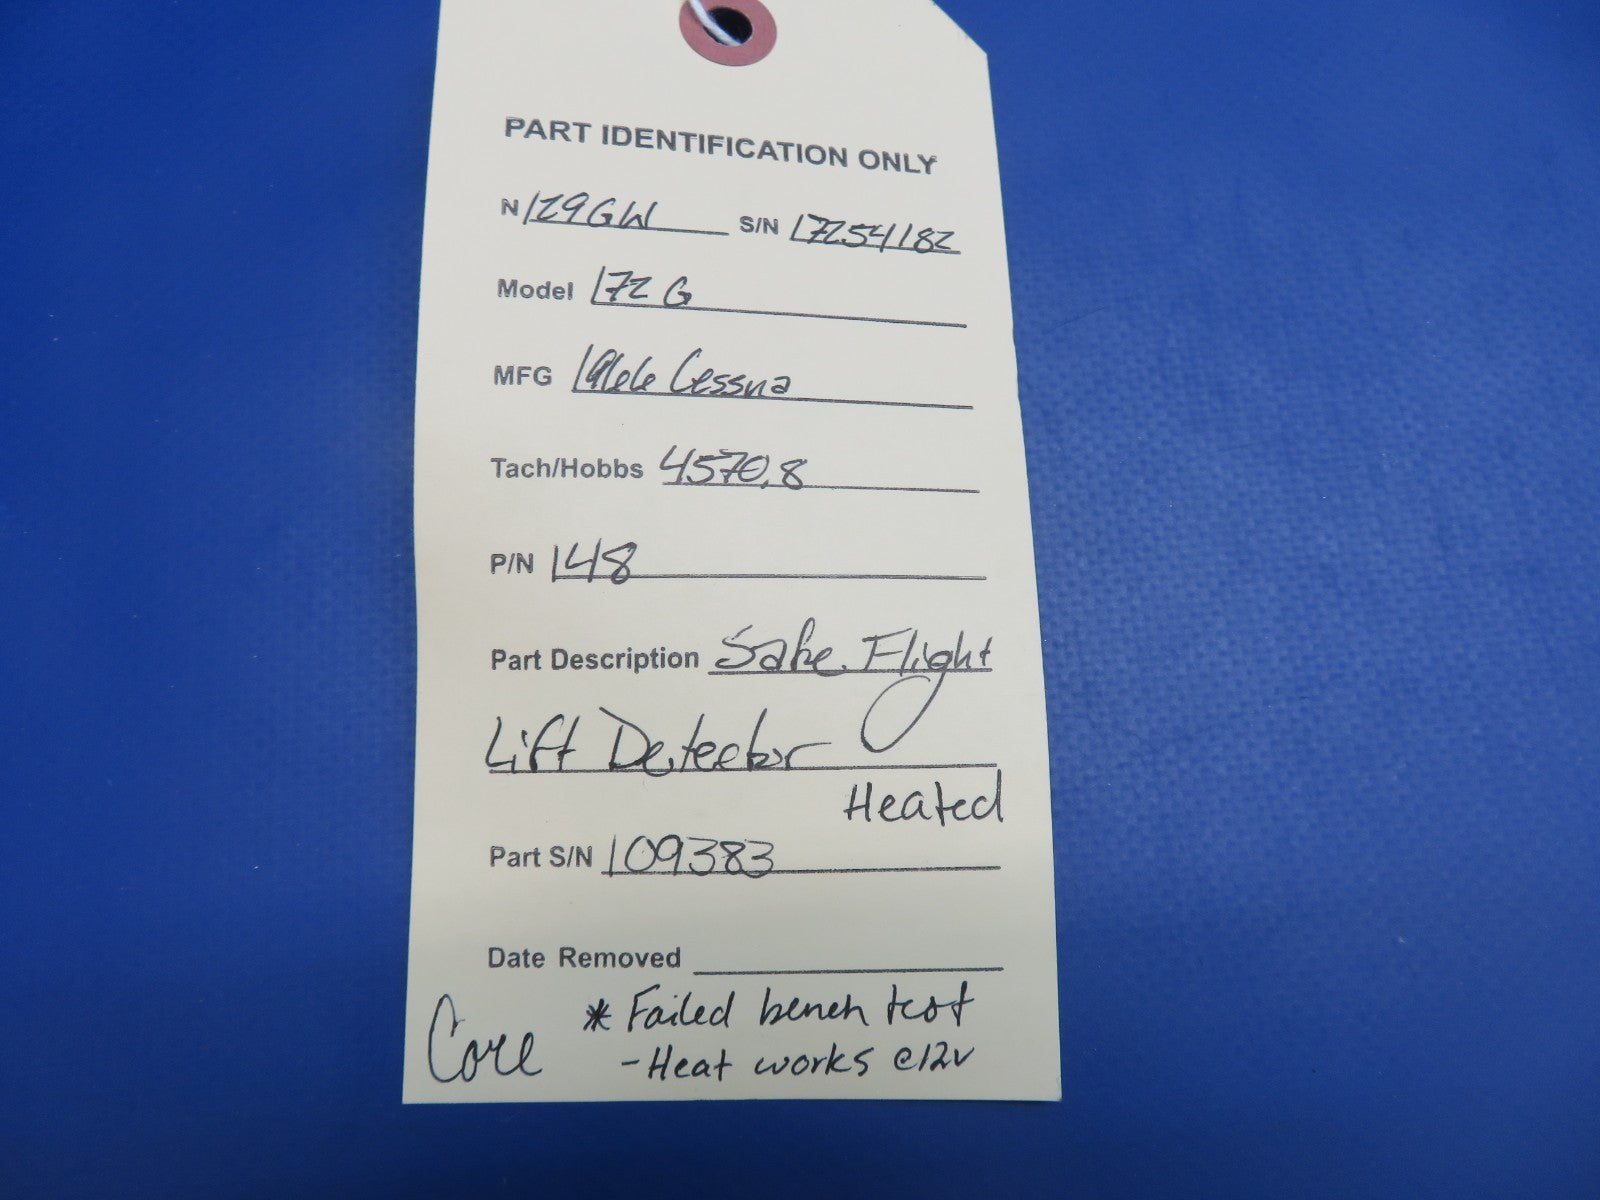 PART IDENTIFICATION ONLY
N 129GW S/N 17254182
Model 172 G
MFG 1966 Cessna
Tach/Hobbs 4570.8
P/N 148
Part Description Safe Flight
Lift Detector
Heated
Part S/N 109383
Date Removed
Core * Failed bench test
- Heat works @12v